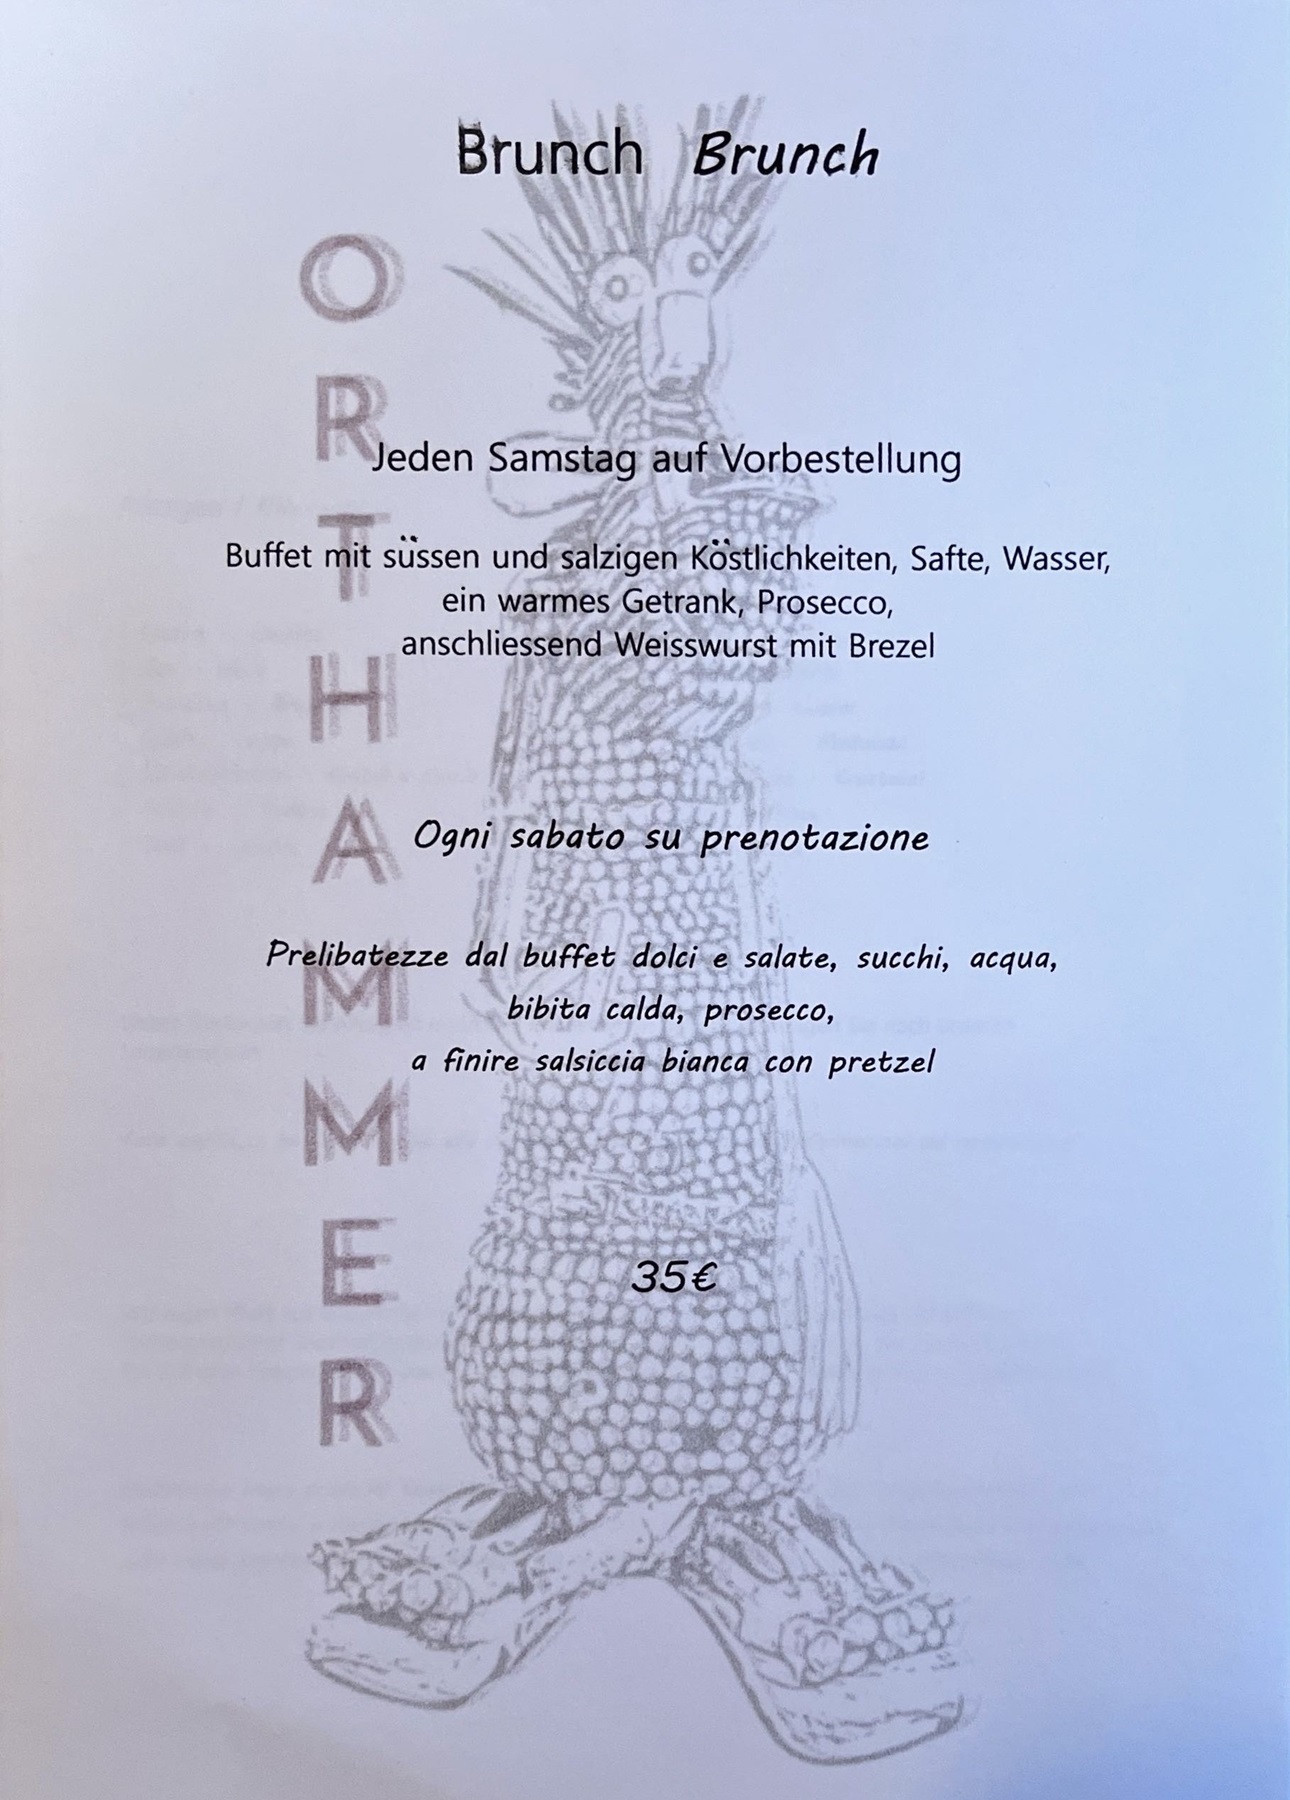 Brunch Brunch
ORTHAMMER
Jeden Samstag auf Vorbestellung
Buffet mit süssen und salzigen Köstlichkeiten, Safte, Wasser,
ein warmes Getrank, Prosecco,
anschliessend Weisswurst mit Brezel
Ogni sabato su prenotazione
Prelibatezze dal buffet dolci e salate, succhi, acqua,
bibita calda, prosecco,
a finire salsiccia bianca con pretzel
35€